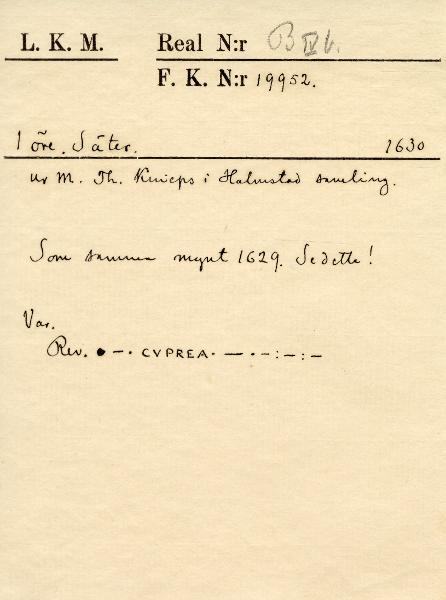 L. K. M. Real N:r B IV b.
F. K. N:r 19952.
1 öre. Säter. 1630
ur M. Th. Knieps i Halmstad samling.
Som samma mynt 1629. Se detta!
Var.
Rev. • — · CVPREA · — · – : – : –